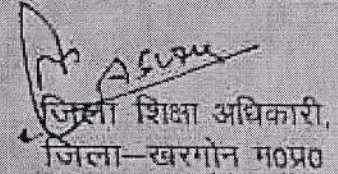 जिला शिक्षा अधिकारी,
जिला–खरगोन म०प्र०